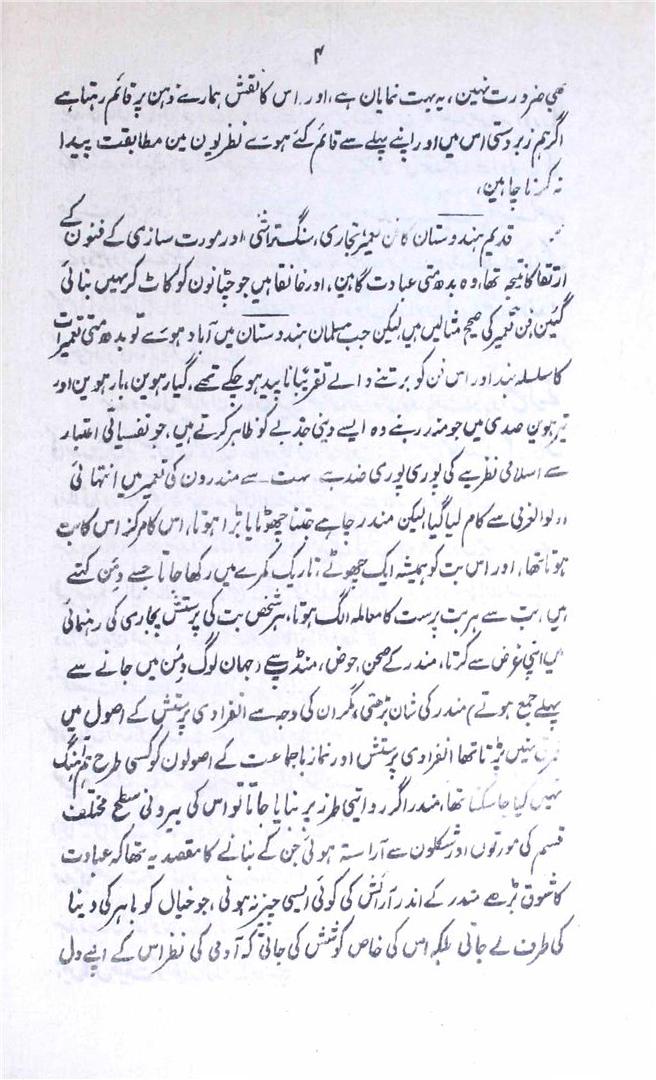 ۴
بھی ضرورت نہین، یہ بہت نمایان ہے، اور اس کا نقش ہمارے ذہن پر قائم رہتا ہے
اگر ہم زبردستی اس میں اور اپنے پہلے سے قائم کئے ہوئے نظریون مین مطابقت پیدا
نہ کرنا چاہین،
قدیم ہندوستان کا فن تعمیر نجاری، سنگتراشی اور مورت سازی کے فنون کے
ارتقا کا نتیجہ تھا، وہ بدھ متی عبادت گاہین، اور خانقاہیں جو چٹانون کو کاٹ کر نہیں بنائی
گئین، فن تعمیر کی صحیح مثالیں ہیں لیکن جب مسلمان ہندوستان میں آباد ہوئے تو بدھ متی تعمیرات
کا سلسلہ بند اور اس فن کو برتنے والے تقریباً ناپید ہو چکے تھے، گیارہوین، بارہوین اور
تیرہوین صدی میں جو مندر بنے وہ ایسے دینی جذبے کو ظاہر کرتے ہیں، جو نفسیاتی اعتبار
سے اسلامی نظریے کی پوری پوری ضد ہے بہت سے مندرون کی تعمیر میں انتہائی
اولوالعزمی سے کام لیا گیا، لیکن مندر چاہے جتنا چھوٹا یا بڑا ہوتا، اس کا مرکز اس کا بت
ہوتا تھا، اور اس بت کو ہمیشہ ایک چھوٹے، تاریک کمرے میں رکھا جاتا جسے دِمن کہتے
ہیں، بت سے ہر بت پرست کا معاملہ الگ ہوتا، ہر شخص بت کی پرستش پجاری کی رہنمائی
میں اپنی غرض سے کرتا، مندر کے صحن، حوض، منڈپ سے (جہان لوگ دِمن میں جانے سے
پہلے جمع ہوتے) مندر کی شان بڑھتی، مگر ان کی وجہ سے انفرادی پرستش کے اصول میں
فرق نہیں پڑتا تھا، انفرادی پرستش اور نماز باجماعت کے اصولون کو کسی طرح ہم آہنگ
نہیں کیا جا سکتا تھا، مندر اگر روایتی طرز پر بنایا جاتا تو اس کی بیرونی سطح مختلف
قسم کی مورتوں اور شکلون سے آراستہ ہوتی جن کے بنانے کا مقصد یہ تھا کہ عبادت
کا شوق بڑھے مندر کے اندر آرائش کی کوئی ایسی چیز نہ ہوتی، جو خیال کو باہر کی دینا
کی طرف لے جاتی بلکہ اس کی خاص کوشش کی جاتی کہ آدمی کی نظر اس کے اپنے دل